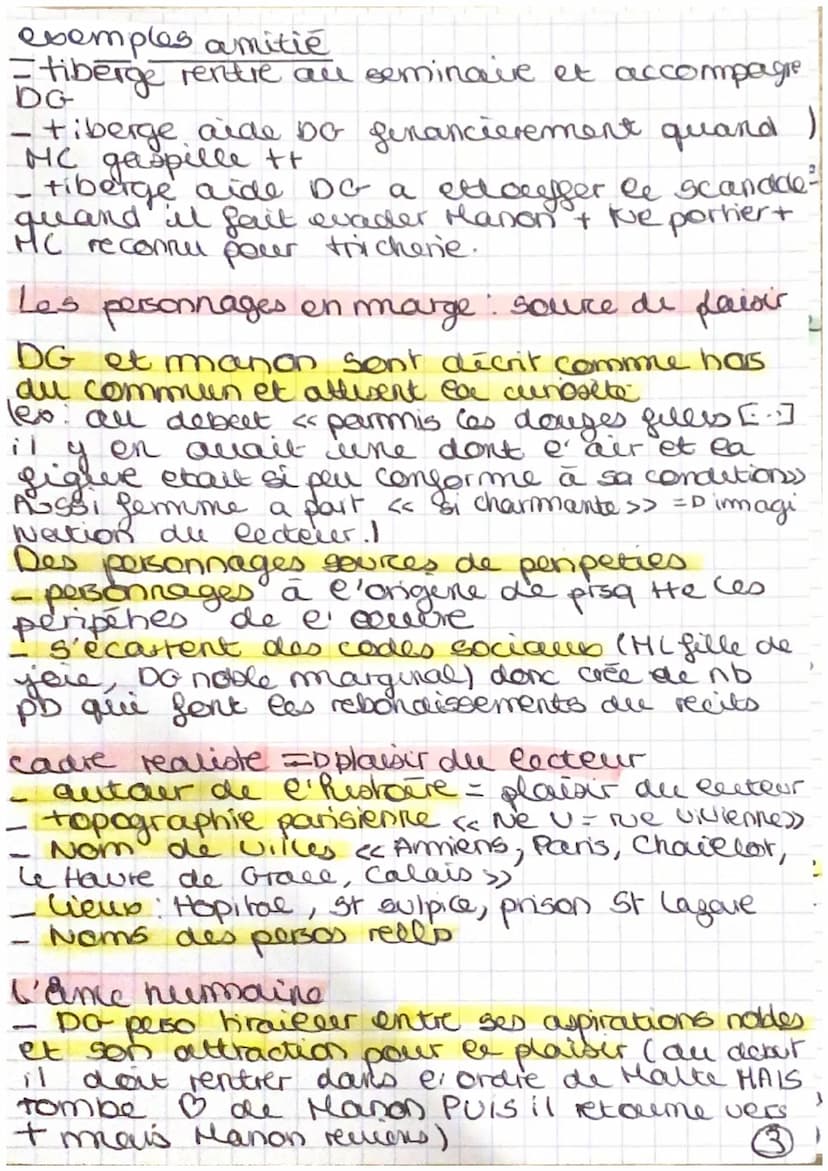 exemples amitié
- tiberge rentre au seminaire et accompagne
DG
- tiberge aide DG financièrement quand
MC gaspille tt
- tiberge aide DG a etouffer le scandale
quand il fait evader Manon + tue portier +
MC reconnu pour tricherie.
Les personnages en marge : source de plaisir
DG et manon sont décrit comme hors
du commun et attisent la curiosité
(ex: au debut << parmis les douzes filles [...]
il y en avait une dont l'air et la
figure etait si peu conforme à sa condition>>
Aussi femme a part << si charmante >> => immagi
nation du lecteur.)
Des personnages sources de peripeties
- personnages à l'origine de presq tte les
péripéties de l'oeuvre
- s'écartent des codes sociaux (ML fille de
joie, DG noble marginal) donc crée de nb
pb qui font les rebondissements du recits
Cadre realiste => plaisir du lecteur
- autour de l'histoire = plaisir du lecteur
- topographie parisienne << rue V = rue Vivienne>>
- Nom de villes << Amiens, Paris, Chaillot,
Le Havre de Grace, Calais >>
- lieux : Hopital, St sulpice, prison St Lazare
- Noms des persos reels
L'âme humaine
- DG perso tirailler entre ses aspirations nobles
et son attraction pour le plaisir (au debut
il doit rentrer dans l'ordre de Malte MAIS
tombe ♡ de Manon PUIS il retourne vers
+ mais Manon reviens)
3